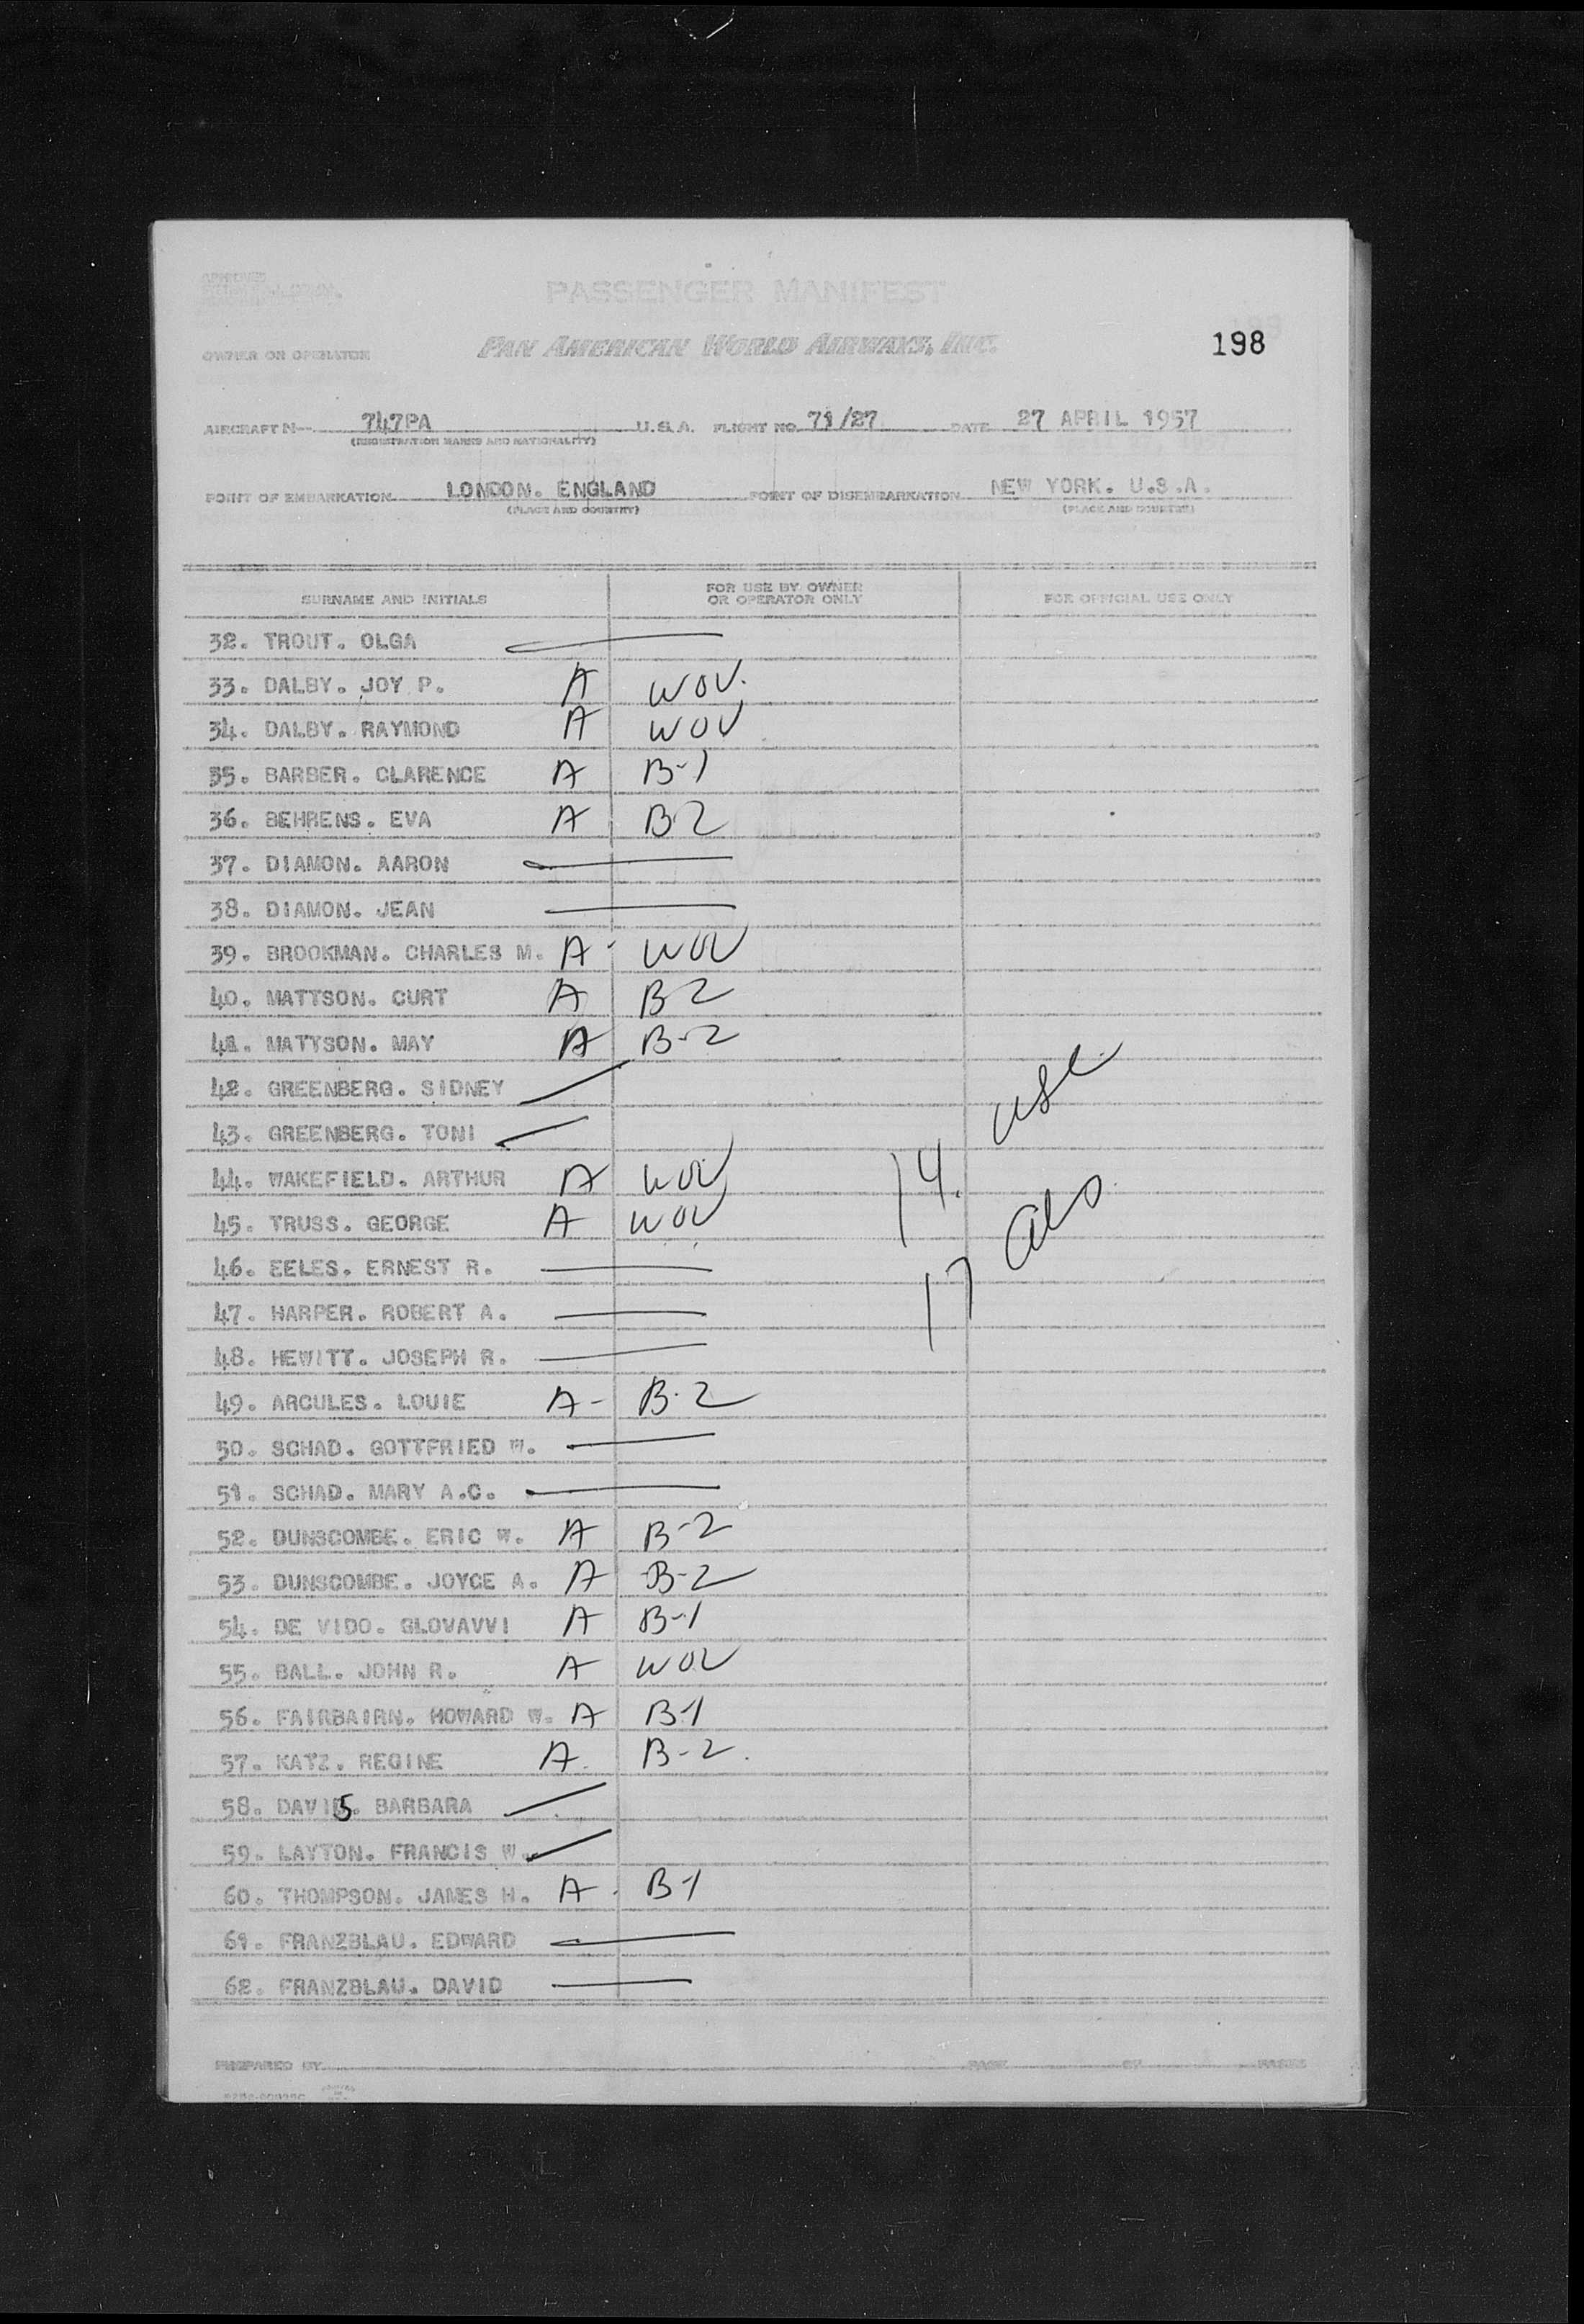 APPROVED
PASSENGER MANIFEST
OWNER OR OPERATOR PAN AMERICAN WORLD AIRWAYS, INC. 198
AIRCRAFT N— 747PA U.S.A. FLIGHT NO. 71/27 DATE 27 APRIL 1957
(REGISTRATION MARKS AND NATIONALITY)
POINT OF EMBARKATION LONDON. ENGLAND POINT OF DISEMBARKATION NEW YORK. U.S.A.
(PLACE AND COUNTRY) (PLACE AND COUNTRY)
SURNAME AND INITIALS FOR USE BY OWNER OR OPERATOR ONLY FOR OFFICIAL USE ONLY
32. TROUT. OLGA
33. DALBY. JOY P. A WOV.
34. DALBY. RAYMOND A WOV
35. BARBER. CLARENCE A B-1
36. BEHRENS. EVA A B2
37. DIAMON. AARON
38. DIAMON. JEAN
39. BROOKMAN. CHARLES M. A - WOV
40. MATTSON. CURT A B2
41. MATTSON. MAY A B-2
42. GREENBERG. SIDNEY
43. GREENBERG. TONI
14. USC
44. WAKEFIELD. ARTHUR A WOV
45. TRUSS. GEORGE A WOV
17 als
46. EELES. ERNEST R.
47. HARPER. ROBERT A.
48. HEWITT. JOSEPH R.
49. ARCULES. LOUIE A - B-2
50. SCHAD. GOTTFRIED W.
51. SCHAD. MARY A.C.
52. DUNSCOMBE. ERIC W. A B-2
53. DUNSCOMBE. JOYCE A. A B-2
54. DE VIDO. GLOVAVVI A B-1
55. BALL. JOHN R. A WOV
56. FAIRBAIRN. HOWARD W. A B-1
57. KATZ. REGINE A. B-2.
58. DAVIS. BARBARA
59. LAYTON. FRANCIS W.
60. THOMPSON. JAMES H. A - B-1
61. FRANZBLAU. EDWARD
62. FRANZBLAU. DAVID
PREPARED BY PAGE OF PAGES